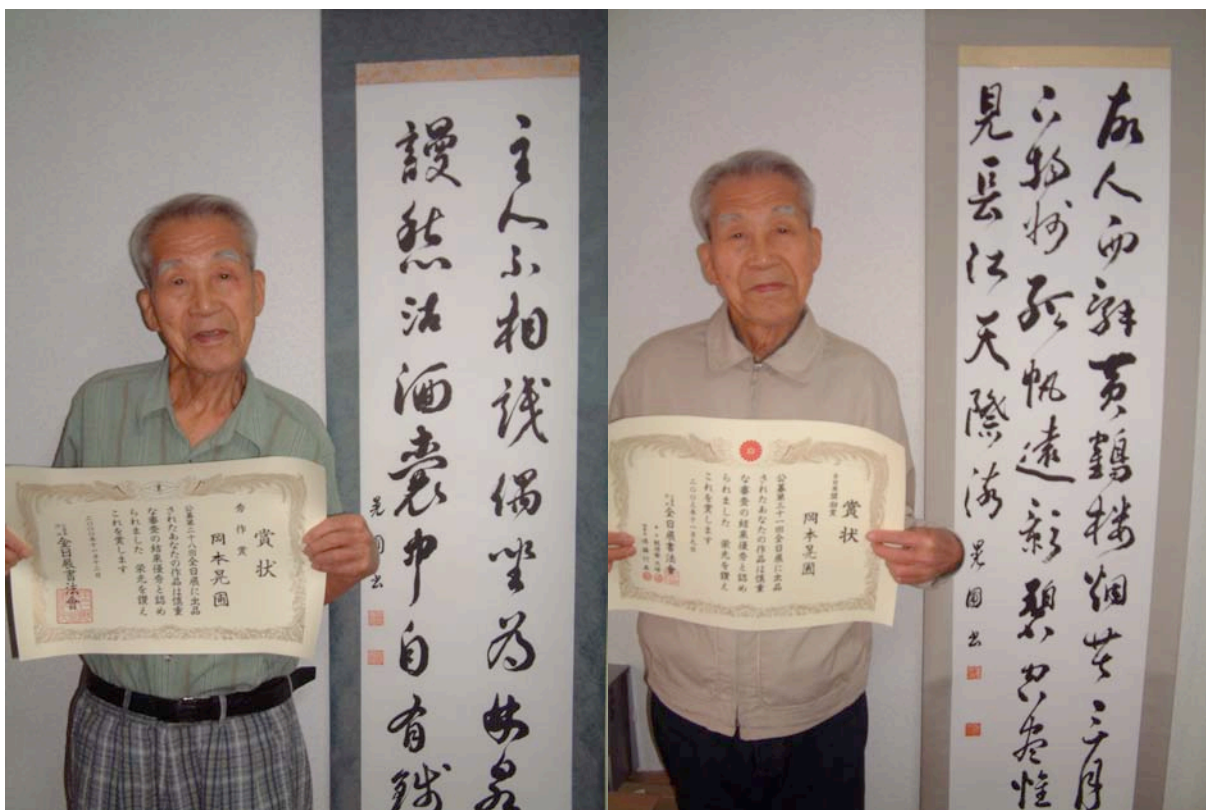 主人不相識偶坐為林泉
謾愁沽酒嚢中自有銭
晃圃書
賞状
秀作賞
岡本晃圃
公募第二十八回全日展に出品
されたあなたの作品は慎重
な審査の結果優秀と認め
られました 栄光を讃え
これを賞します
全日展書法會
故人西辞黄鶴楼烟花三月
下揚州孤帆遠影碧空尽惟
見長江天際流 晃圃書
賞状
岡本晃圃
公募第三十一回全日展に出品
されたあなたの作品は慎重
な審査の結果優秀と認め
られました 栄光を讃え
これを賞します
全日展書法會